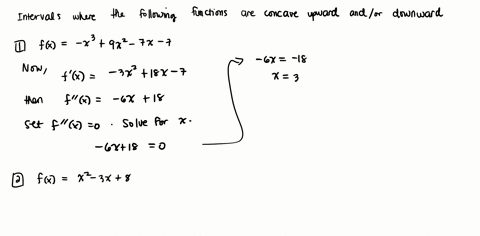 Intervals where the following functions are concave upward and/or downward
1 f(x) = -x³ + 9x² - 7x - 7
Now, f'(x) = -3x² + 18x - 7
then f''(x) = -6x + 18
Set f''(x) = 0 . Solve for x.
-6x+18 = 0
-6x = -18
x = 3
2 f(x) = x² - 3x + 8